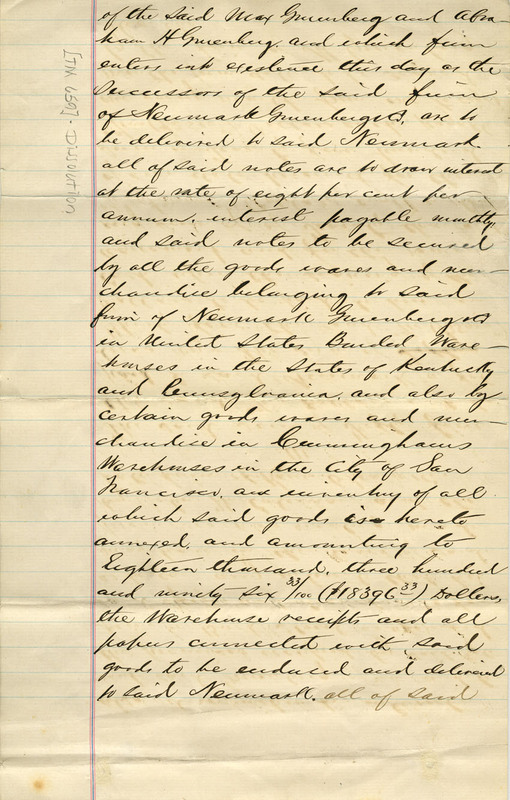 of the said Max Gruenberg and Abra-
ham H Gruenberg, and which firm
enters into existence this day as the
Successors of the said firm
of Neumark Gruenberg & Co, are to
be delivered to said Neumark.
all of said notes are to draw interest
at the rate of eight per cent per
annum, interest payable monthly,
and said notes to be secured
by all the goods wares and mer-
chandise belonging to said
firm of Neumark Gruenberg & Co
in United States Bonded Ware-
houses in the States of Kentucky
and Pennsylvania, and also by
certain goods wares and mer-
chandise in Cunninghams
Warehouses in the City of San
Francisco, an inventory of all
which said goods is hereto
annexed, and amounting to
Eighteen thousand, three hundred
and ninety six 33/100 ($18396 33) Dollars,
the Warehouse receipts and all
papers connected with said
goods to be endorsed and delivered
to said Neumark. all of said
Dissolution